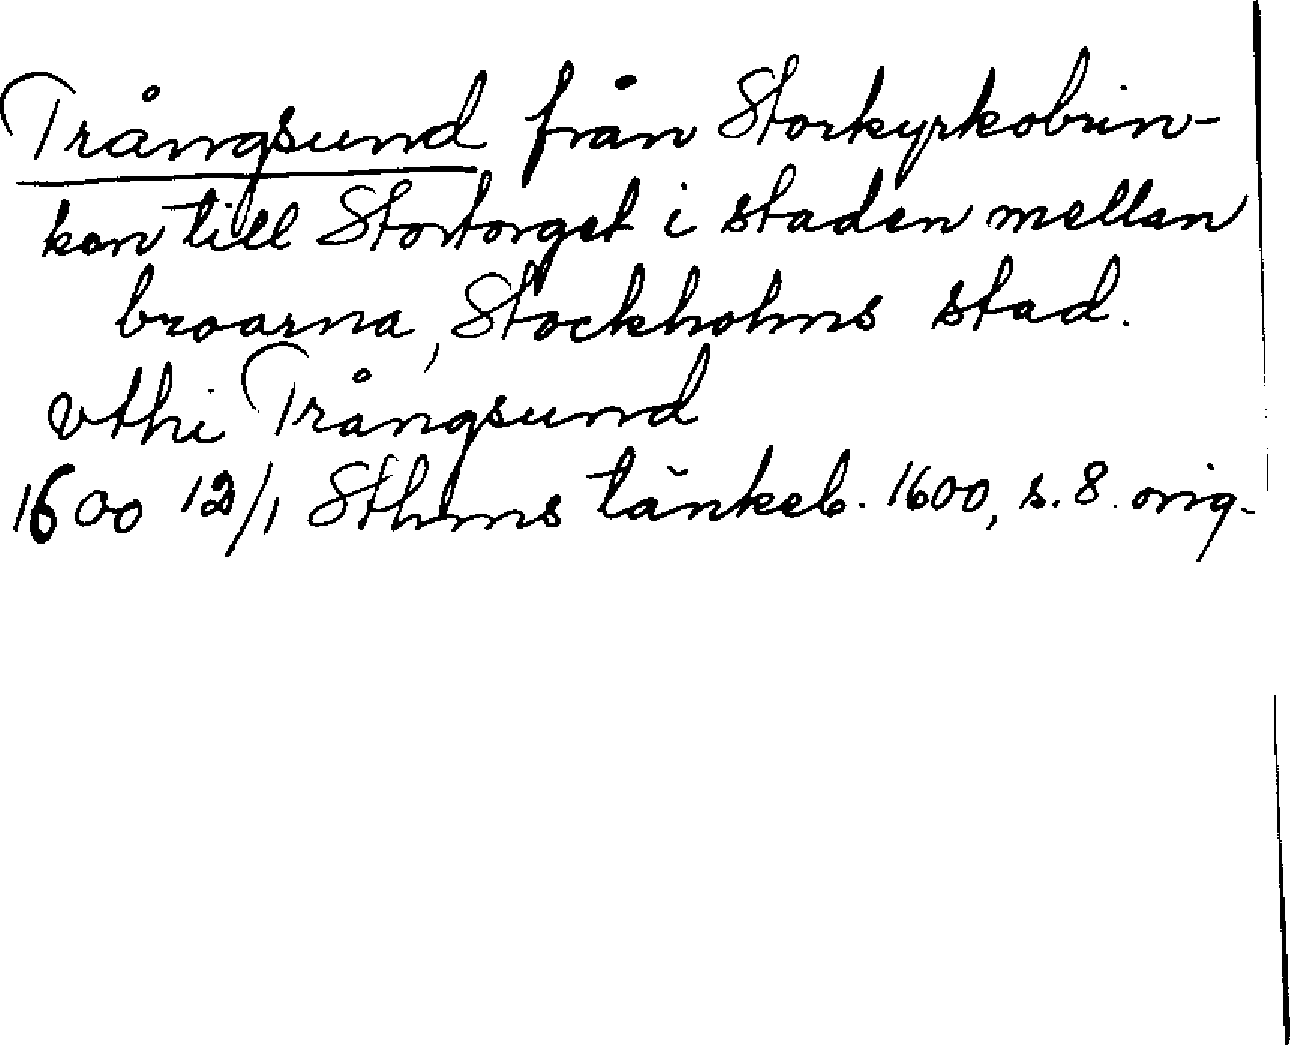 Trångsund från Storkyrkobrin-
ken till Stortorget i staden mellan
broarna, Stockholms stad.
vthi Trångsund
1600 12/1 Sthms tänkeb. 1600, s. 8. orig.